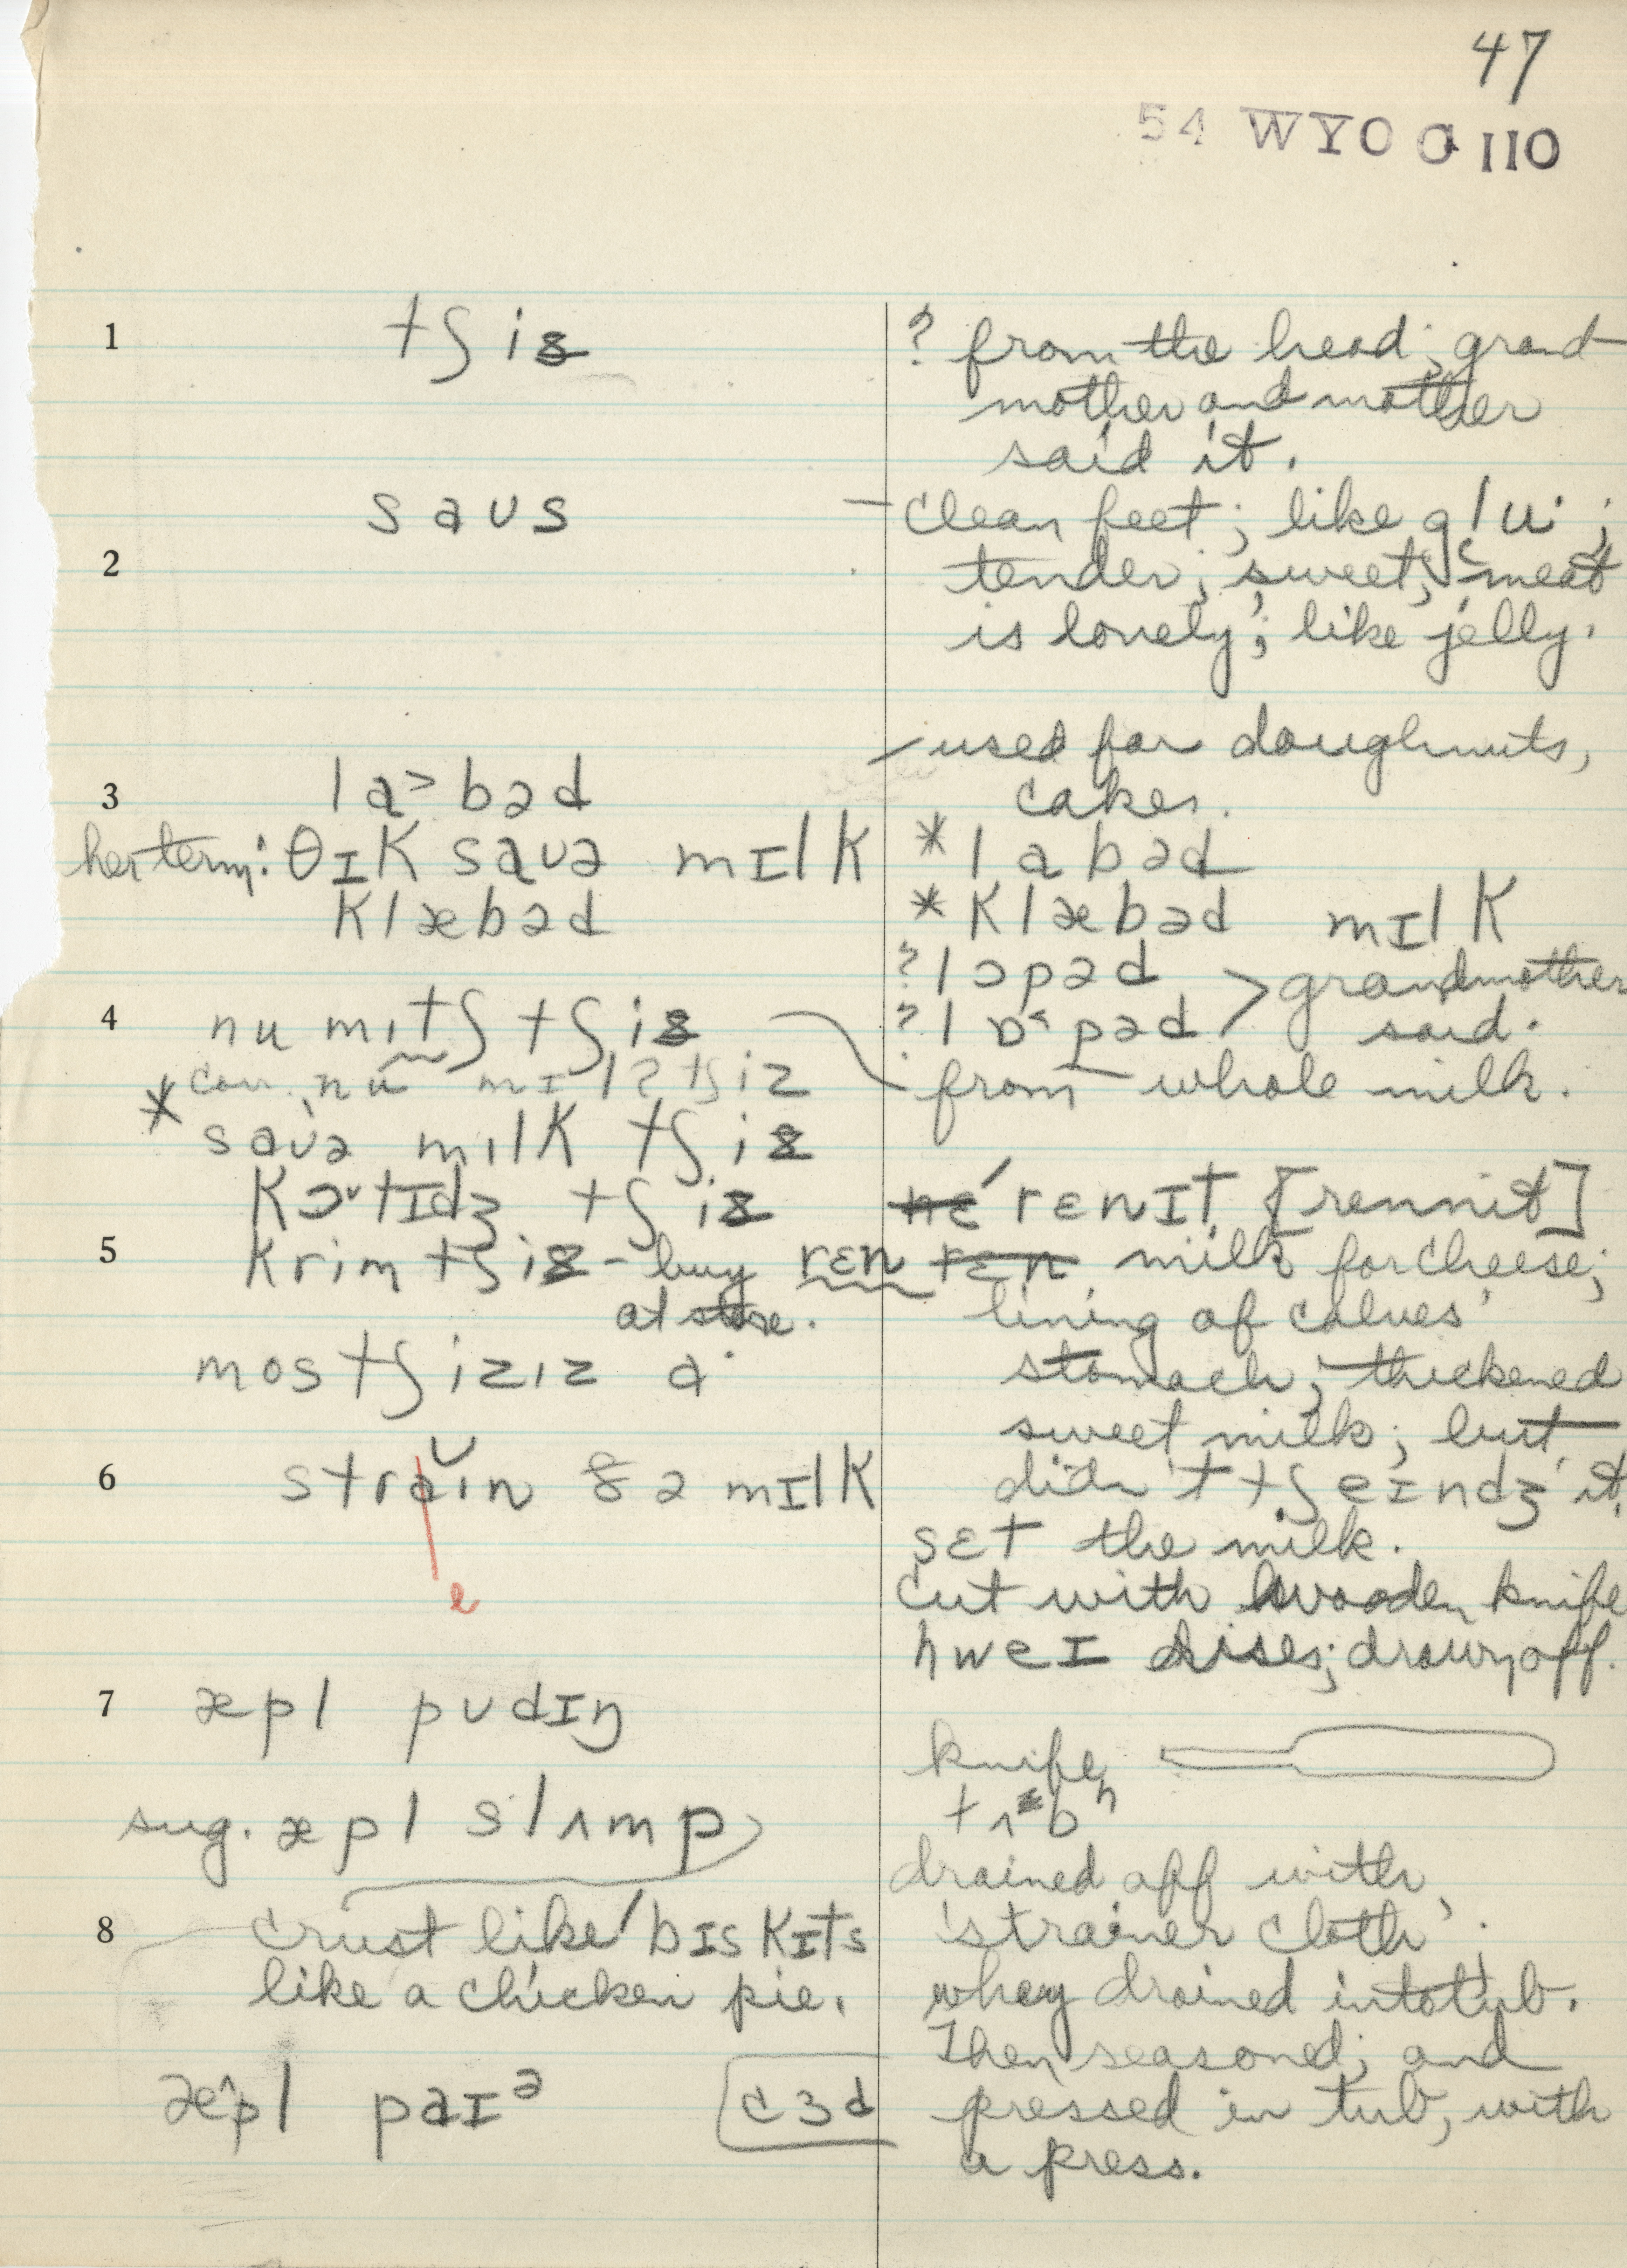 47
54 WYO a 110
1 tʃiz
? from the head; grand
mother and mother
said it.
saʊs
– clean feet; like glu· ;
2
tender; sweet; 'meat
is lonely'; like jelly.
used for doughnuts,
cakes.
3 la>bəd
* labəd
her term: θɪk saʊə mɪlk
klæbəd
* klæbəd mɪlk
? lɔpəd > grandmother
? lɒ˂pəd said.
4 nu mɪtʃ tʃiz
from whole milk.
* con. nu mɪlətʃiz
saʊə mɪlk tʃiz
kɔtɪdʒ tʃiz
nɛ́ rɛnɪt [rennit]
5 krim tʃiz – buy
at store.
rɛn rɛn milk for cheese;
lining of calves'
stomach; thickened
sweet milk; but
didn't tʃeɪndʒ it.
mos tʃizɪz a·
6 straɪn ðə mɪlk
e
sɛt the milk.
cut with wooden knife
hweɪ rises; drawn off.
7 æpl pʊdɪŋ
knife
tʌb
sug. æpl slʌmp
drained off with
'strainer cloth'.
8 crust like bɪskɪts
like a chicken pie.
whey drained into tub.
Then seasoned; and
pressed in tub, with
a press.
æ^pl paɪə
c3d